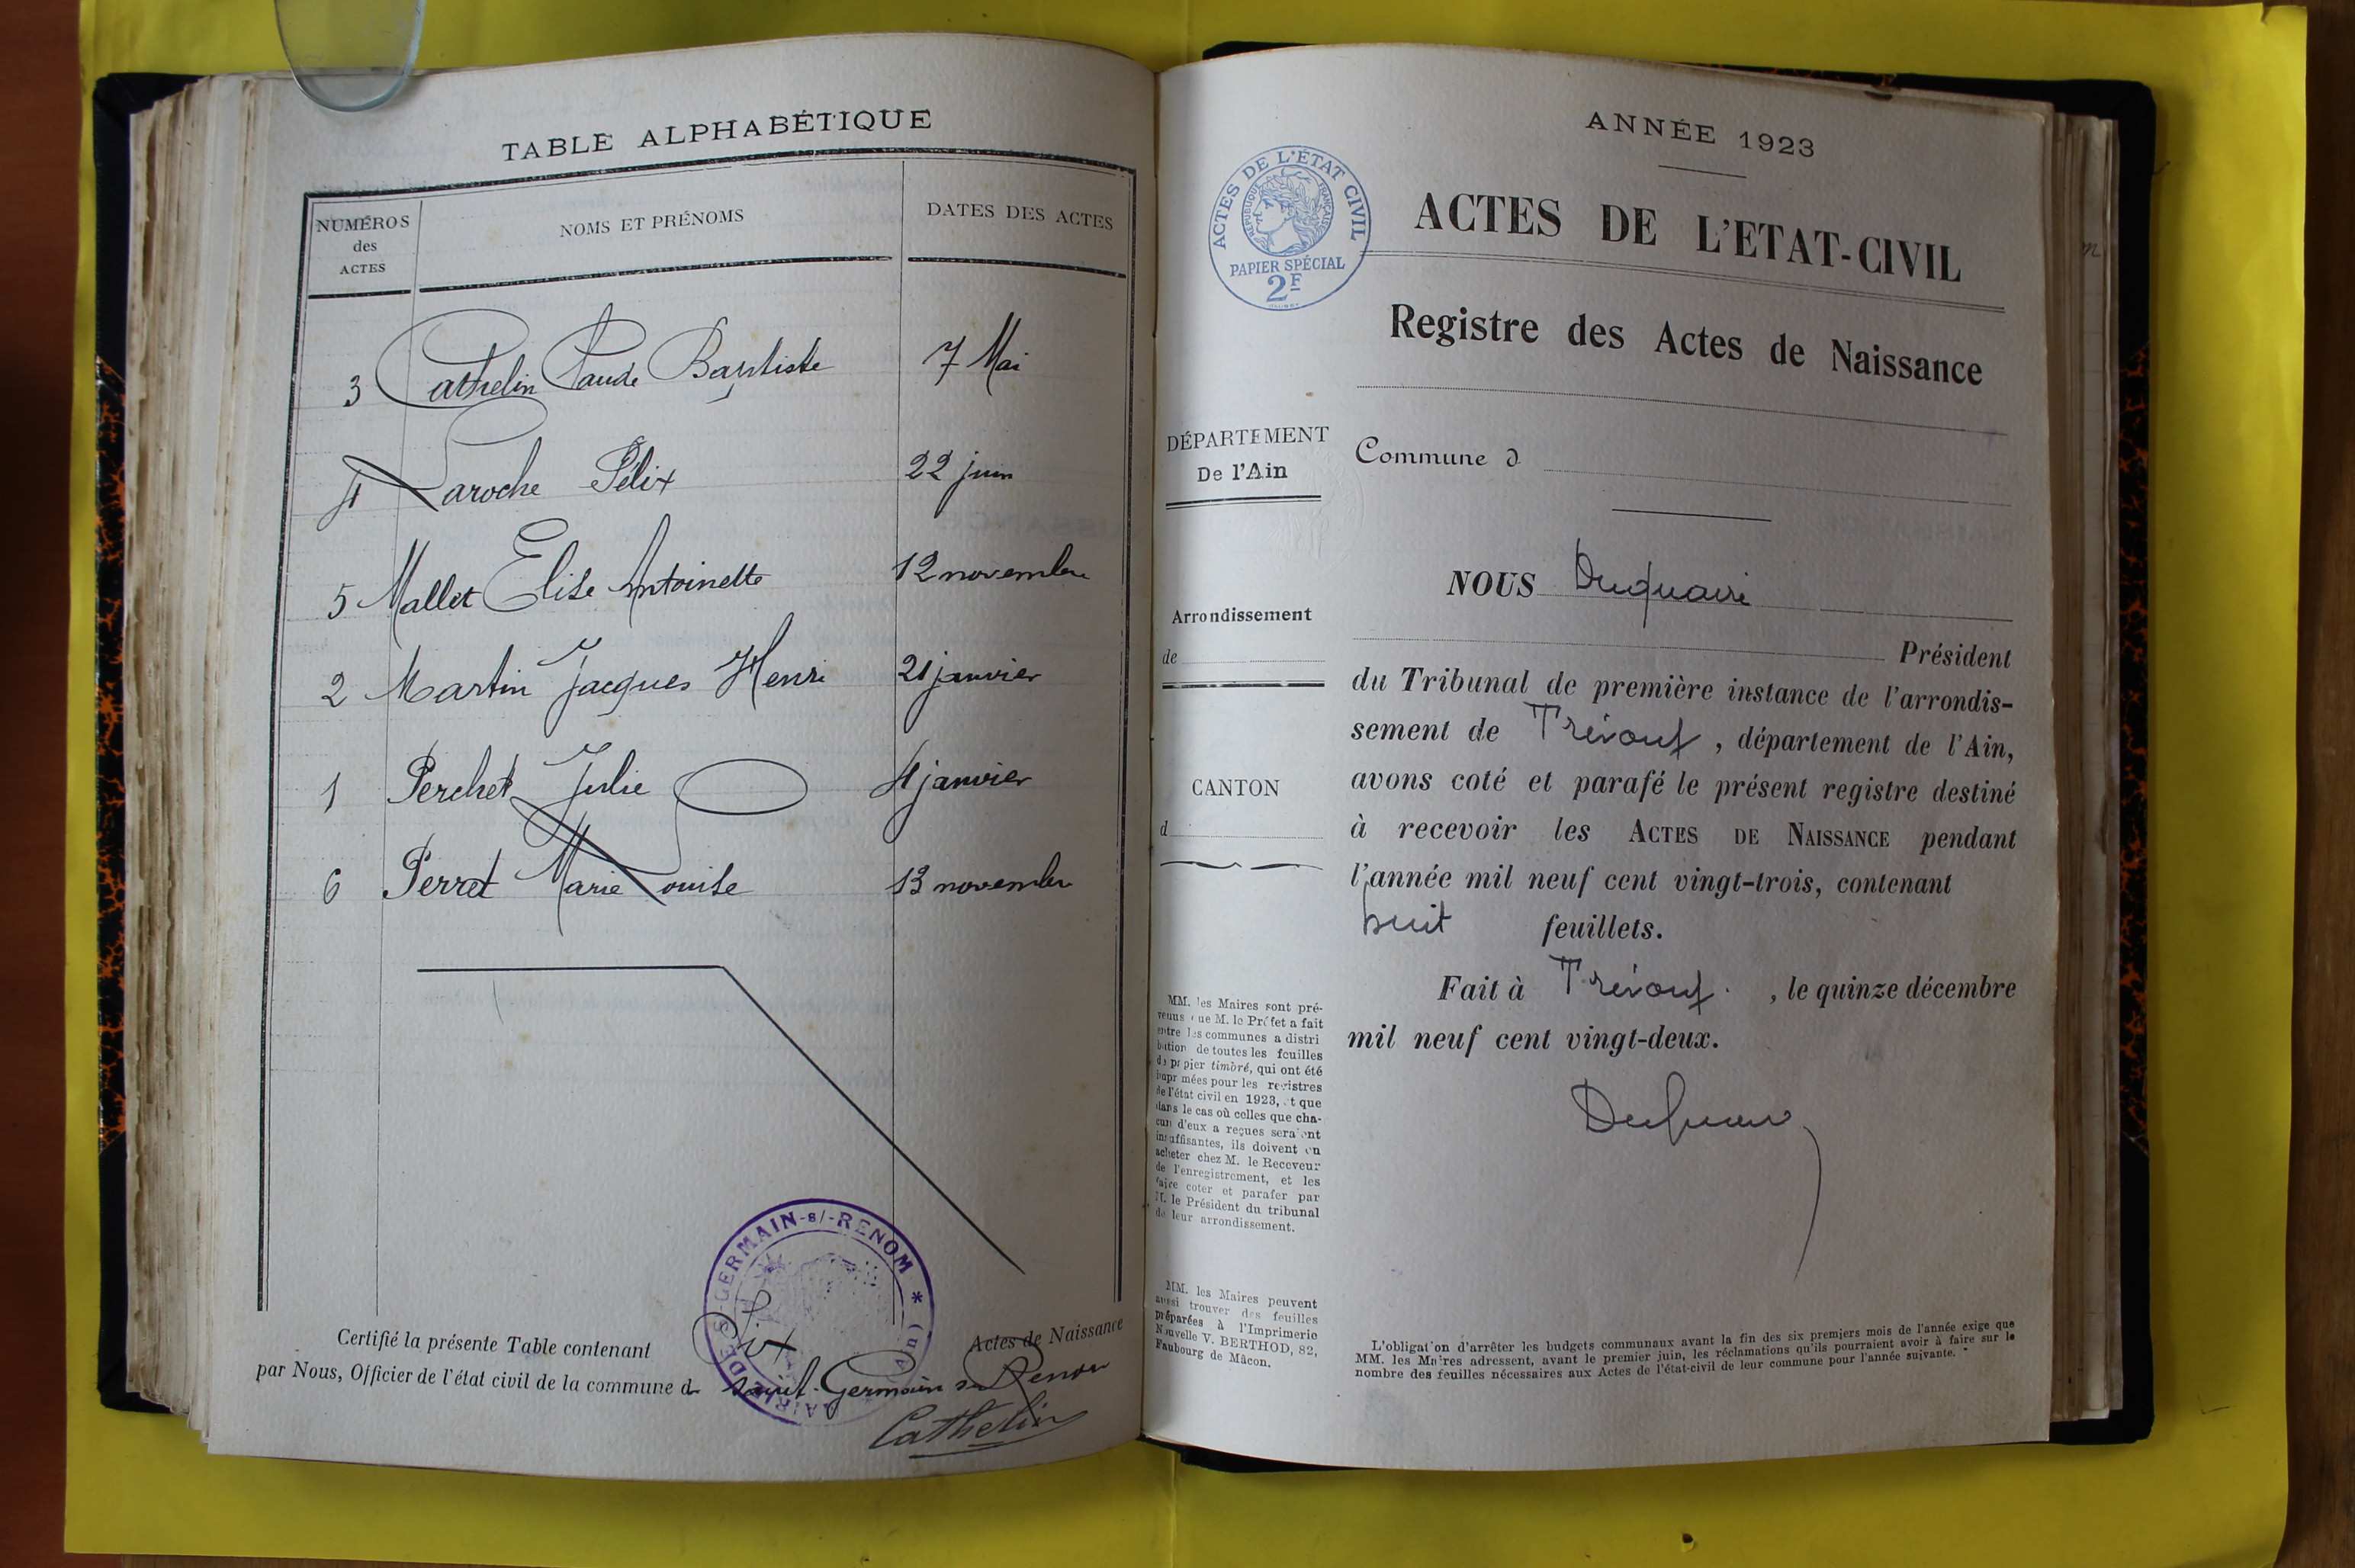 TABLE ALPHABÉTIQUE
NUMÉROS
des
ACTES
NOMS ET PRÉNOMS
DATES DES ACTES
3 Cathelin Claude Baptiste 7 Mai
4 Laroche Félix 22 juin
5 Mallet Elise Antoinette 12 novembre
2 Martin Jacques Henri 21 janvier
1 Perchet Julie 4 janvier
6 Perret Marie Louise 13 novembre
MAIRIE DE St-GERMAIN-s/-RENOM * (Ain)
Certifié la présente Table contenant Six Actes de Naissance
par Nous, Officier de l'état civil de la commune de Saint-Germain s. Renom
Cathelin
ANNÉE 1923
ACTES DE L'ÉTAT CIVIL
RÉPUBLIQUE FRANÇAISE
PAPIER SPÉCIAL
2F
ACTES DE L'ETAT-CIVIL
Registre des Actes de Naissance
DÉPARTEMENT
De l'Ain
Commune d
Arrondissement
de
CANTON
d
NOUS Duquaire
Président
du Tribunal de première instance de l'arrondis-
sement de Trévoux, département de l'Ain,
avons coté et parafé le présent registre destiné
à recevoir les ACTES DE NAISSANCE pendant
l'année mil neuf cent vingt-trois, contenant
huit feuillets.
Fait à Trévoux. , le quinze décembre
mil neuf cent vingt-deux.
MM. les Maires sont pré-
venus que M. le Préfet a fait
entre les communes a distri
bution de toutes les feuilles
de papier timbré, qui ont été
imprimées pour les registres
de l'état civil en 1923, et que
dans le cas où celles que cha-
cun d'eux a reçues seraient
insuffisantes, ils doivent en
acheter chez M. le Receveur
de l'enregistrement, et les
faire coter et parafer par
M. le Président du tribunal
de leur arrondissement.
MM. les Maires peuvent
aussi trouver des feuilles
préparées à l'Imprimerie
Nouvelle V. BERTHOD, 82,
Faubourg de Mâcon.
L'obligation d'arrêter les budgets communaux avant la fin des six premiers mois de l'année exige que
MM. les Maires adressent, avant le premier juin, les réclamations qu'ils pourraient avoir à faire sur le
nombre des feuilles nécessaires aux Actes de l'état-civil de leur commune pour l'année suivante.